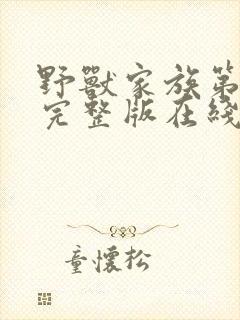 野獸家族第
完整版在綫
童懷松